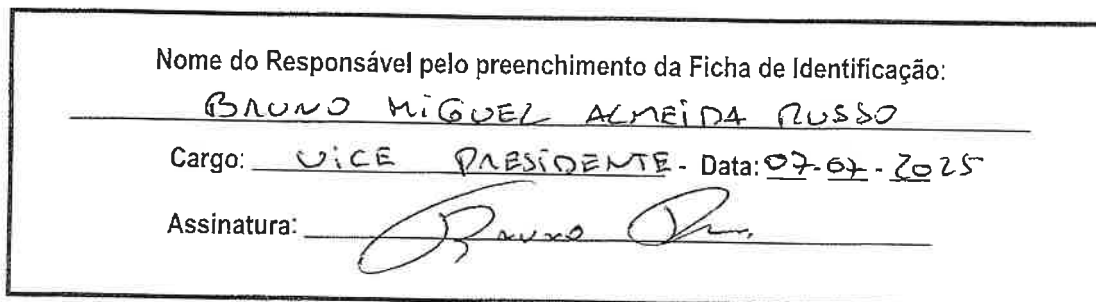 Nome do Responsável pelo preenchimento da Ficha de Identificação:
BRUNO MIGUEL ALMEIDA RUSSO
Cargo: VICE PRESIDENTE - Data: 07-07-2025
Assinatura: Bruno